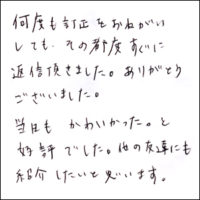 何度も訂正をおねがい
しても、その都度すぐに
返信頂きました。ありがとう
ございました。
当日も かわいかった。と
好評でした。他の友達にも
紹介したいと思います。